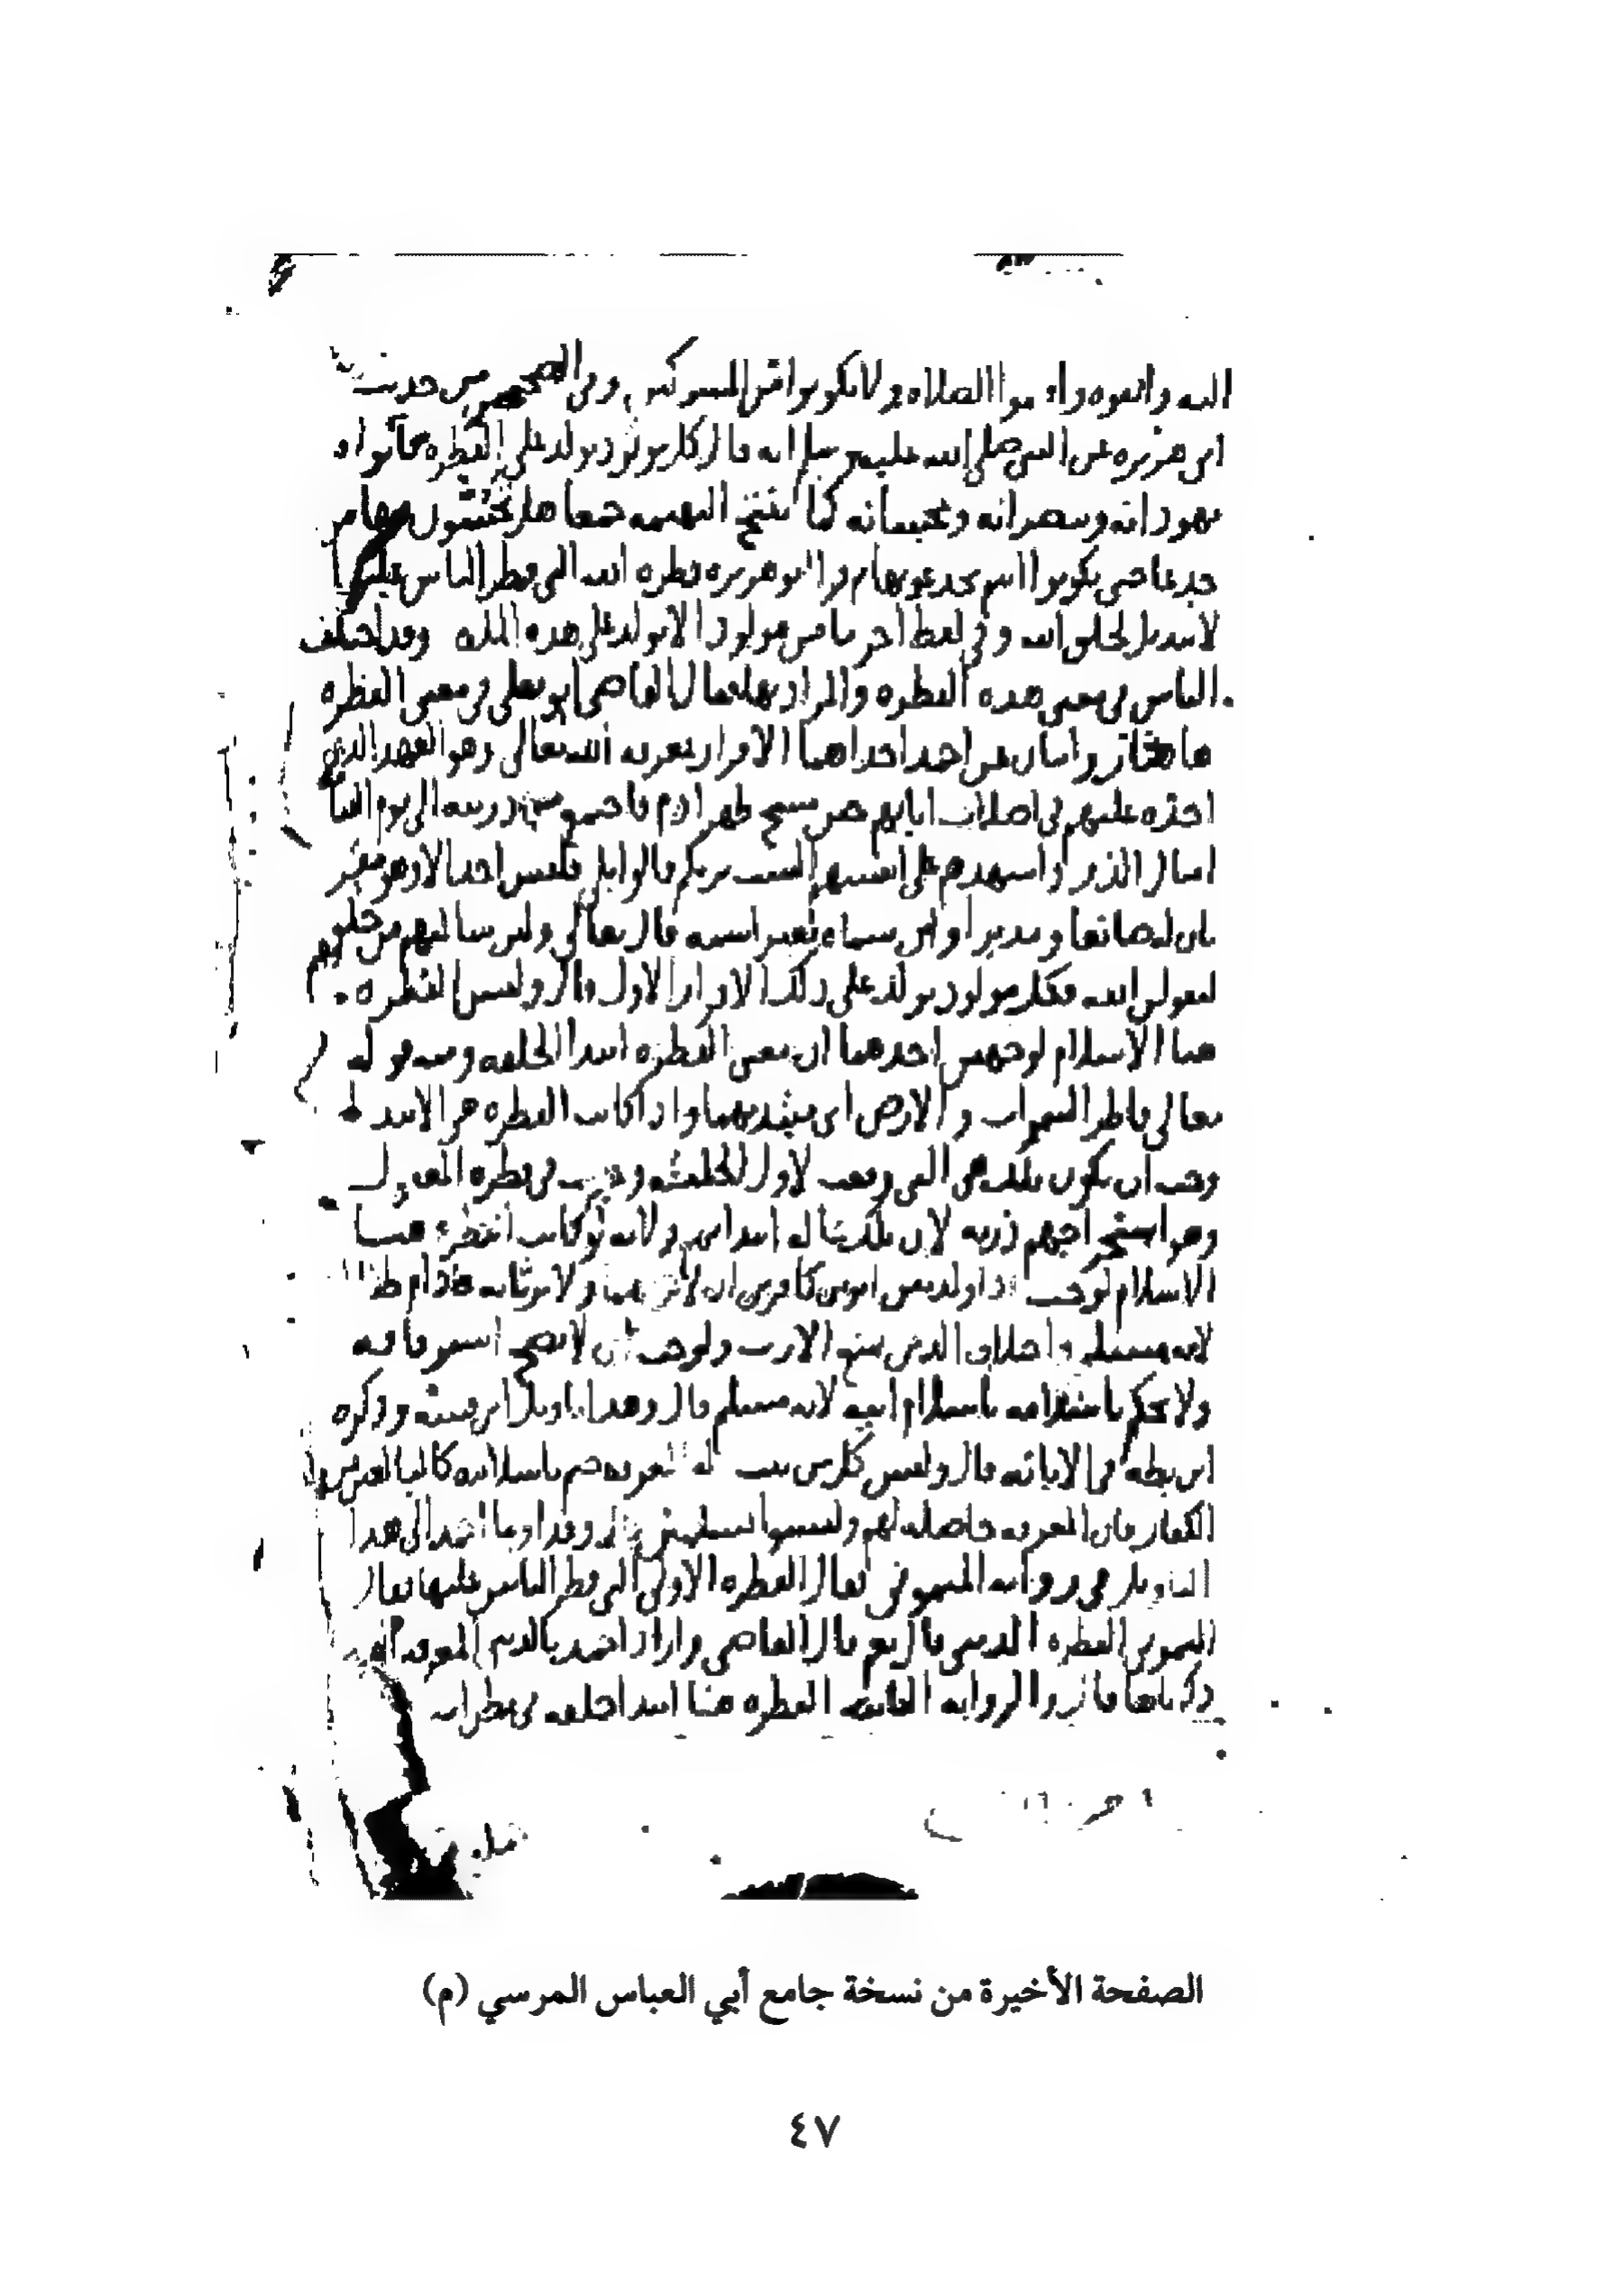 اليه واتقوه واقيموا الصلاه ولا تكونوا من المشركين وفي الصحيحين من حديث
ابي هريره عن النبي صلى الله عليه وسلم انه قال كل مولود يولد على الفطره فابواه
يهودانه وينصرانه ويمجسانه كما تنتج البهيمه جمعا هل تحسون فيها من
جدعا حتى تكونوا انتم تجدعونها ثم قرا ابو هريره فطره الله التي فطر الناس عليها
لا تبديل لخلق الله وفي لفظ اخر ما من مولود الا يولد على هذه المله وقد اختلف
الناس في معنى هذه الفطره والمراد بها فقال القاضي ابو يعلى في معنى الفطره
ها هنا روايتان عن احمد احداهما الاقرار بمعرفه الله تعالى وهو العهد الذي
اخذه عليهم في اصلاب ابايهم حين مسح ظهر ادم فاخرج من ذريته الى يوم القيامه
امثال الذر واشهدهم على انفسهم الست بربكم قالوا بلى فليس احد الا وهو مقر
بان له صانعا ومدبرا وان سماه بغير اسمه قال تعالى ولين سالتهم من خلقهم
ليقولن الله فكل مولود يولد على ذلك الاقرار الاول قال وليس الفطره
هنا الاسلام لوجهين احدهما ان معنى الفطره ابتدا الخلقه ومنه قوله
تعالى فاطر السموات والارض اي مبتديهما واذا كانت الفطره هي الابتدا
وجب ان تكون تلك هي التي وقعت لاول الخلق وجرت في فطره المعقول
وهو استخراجهم ذريه لان تلك حاله ابتدايهم ولانه لو كانت الفطره هنا
الاسلام لوجب اذا ولد بين ابوين كافرين ان لا يرثهما ولا يرثانه ما دام طفلا
لانه مسلم واختلاف الدين يمنع الارث ولوجب ان لا يصح استرقاقه
ولا يحكم باسلامه باسلام ابيه لانه مسلم قال وهذا تاويل ابن قتيبه وذكره
ابن بطه في الابانه قال وليس كل من تثبت له المعرفه حكم باسلامه كالبالغين من
الكفار فان المعرفه حاصله لهم وليسوا بمسلمين قال وقد اوما احمد الى هذا
التاويل في روايه الميموني فقال الفطره الاولى التي فطر الناس عليها فقال
الميموني الفطره الدين قال نعم قال القاضي واراد احمد بالدين المعرفه التي
ذكرناها قال والروايه الثانيه الفطره هنا ابتدا خلقه في بطن امه
الصفحة الأخيرة من نسخة جامع أبي العباس المرسي (م)
٤٧